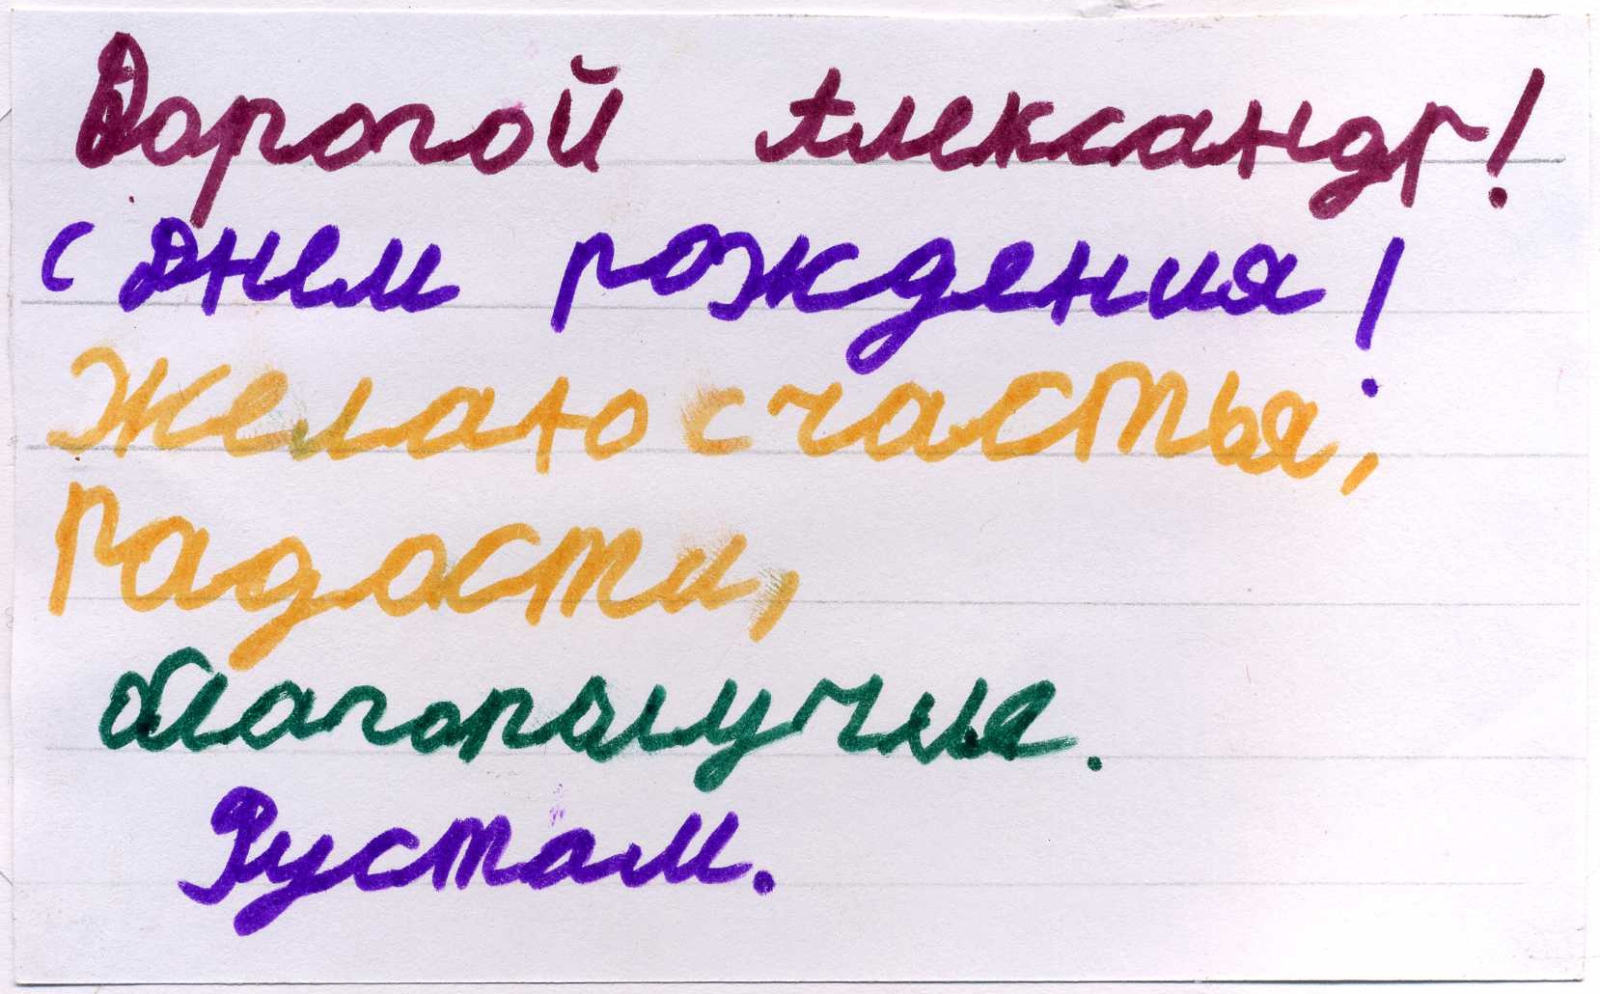 Дорогой Александр!
с Днем рождения!
Желаю счастья,
радости,
благополучья.
Рустам.